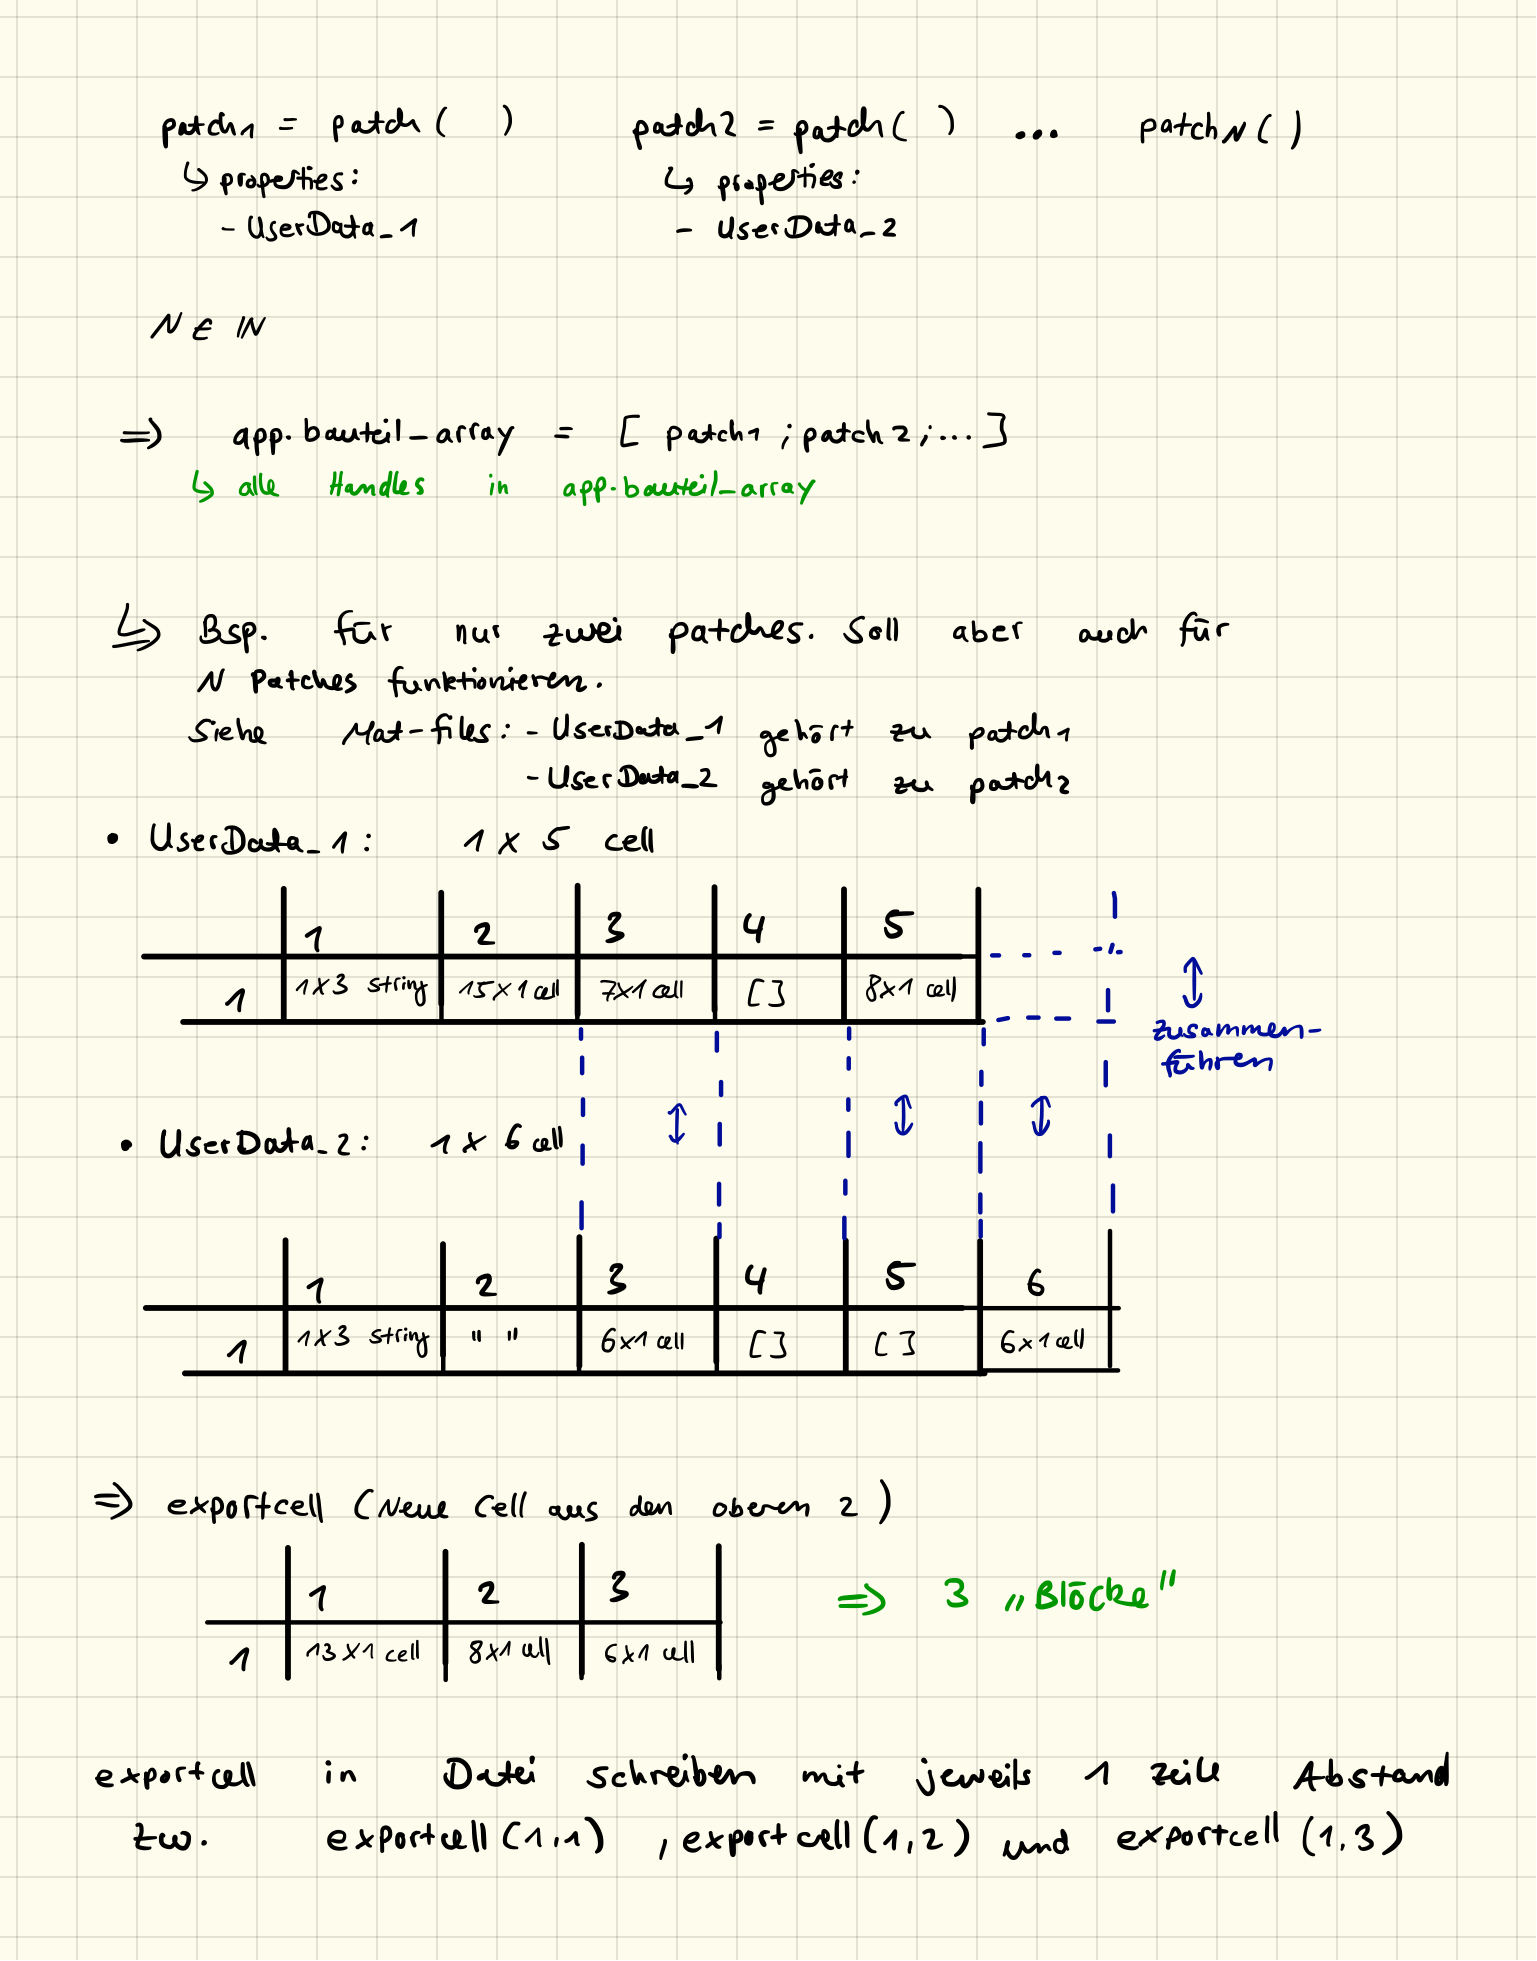 patch1 = patch( ) patch2 = patch( ) ... patchN( )
↳ properties: ↳ properties:
- UserData_1 - UserData_2
NEIN
⇒ app.bauteil_array = [ patch1 ; patch2 ; ... ]
↳ alle Handles in app.bauteil_array
↳ Bsp. für nur zwei patches. Soll aber auch für
N Patches funktionieren.
Siehe Mat-files: - UserData_1 gehört zu patch1
- UserData_2 gehört zu patch2
• UserData_1: 1 x 5 cell
1 2 3 4 5
1 1x3 string 15x1 cell 7x1 cell [] 8x1 cell
zusammen-
führen
• UserData_2: 1 x 6 cell
1 2 3 4 5 6
1 1x3 string " " 6x1 cell [] [] 6x1 cell
⇒ exportcell (Neue Cell aus den oberen 2)
1 2 3 ⇒ 3 „Blöcke"
1 13x1 cell 8x1 cell 6x1 cell
exportcell in Datei schreiben mit jeweils 1 zeile Abstand
zw. exportcell(1,1) , exportcell(1,2) und exportcell (1,3)